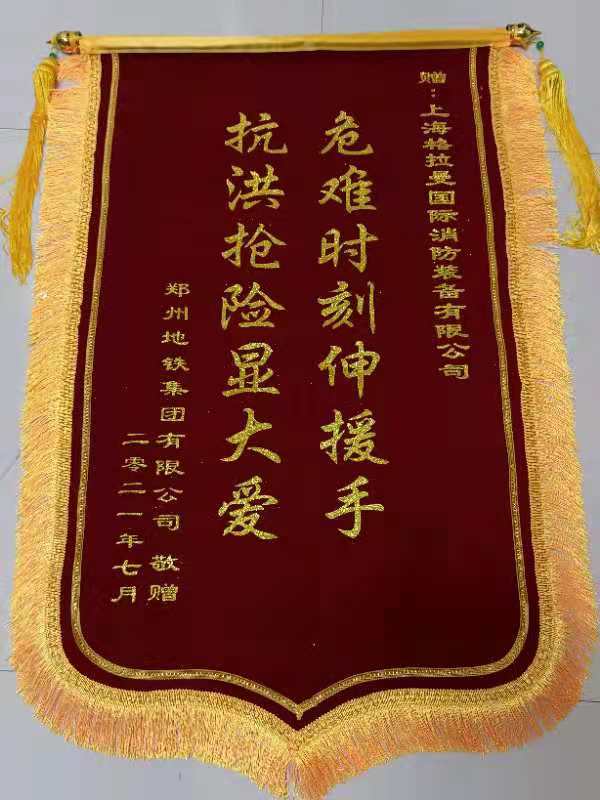 赠：上海格拉曼国际消防装备有限公司
危难时刻伸援手
抗洪抢险显大爱
郑州地铁集团有限公司 敬赠
二零二一年七月